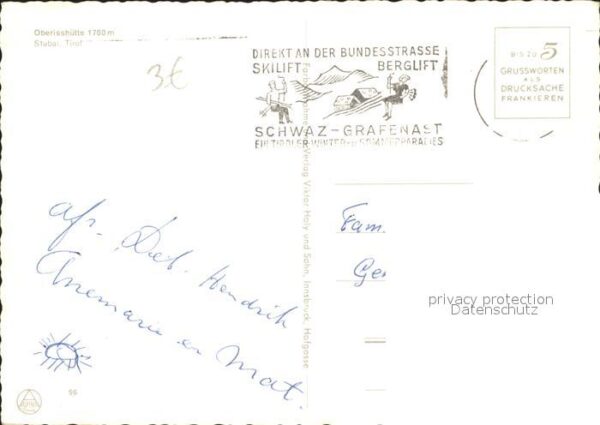 Oberisshütte 1780 m
Stubai, Tirol
3€
DIREKT AN DER BUNDESSTRASSE
SKILIFT BERGLIFT
SCHWAZ-GRAFENAST
EIN TIROLER WINTER- SOMMERPARADIES
BIS ZU 5
GRUSSWORTEN
ALS
DRUCKSACHE
FRANKIEREN
Verlag Viktor Holly und Sohn, Innsbruck, Hofgasse
afz. Det. Hendrik
Annemarie en Mat.
Fam.
Ger
privacy protection
Datenschutz
96